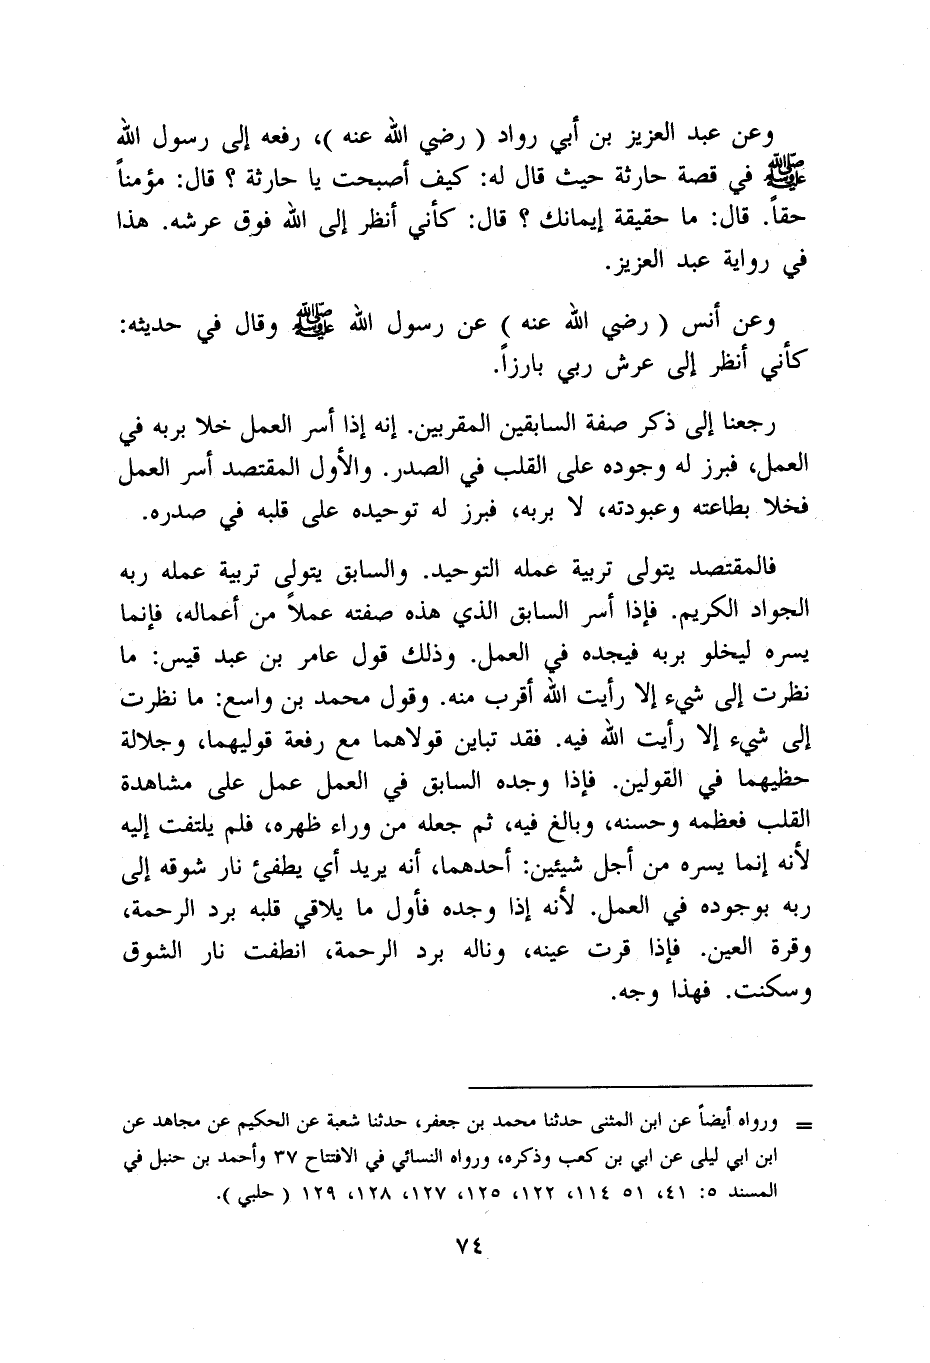 وعن عبد العزيز بن أبي رواد ( رضي الله عنه )، رفعه إلى رسول الله
ﷺ في قصة حارثة حيث قال له: كيف أصبحت يا حارثة ؟ قال: مؤمناً
حقاً. قال: ما حقيقة إيمانك ؟ قال: كأني أنظر إلى الله فوق عرشه. هذا
في رواية عبد العزيز.
وعن أنس ( رضي الله عنه ) عن رسول الله ﷺ وقال في حديثه:
كأني أنظر إلى عرش ربي بارزاً.
رجعنا إلى ذكر صفة السابقين المقربين. إنه إذا أسر العمل خلا بربه في
العمل، فبرز له وجوده على القلب في الصدر. والأول المقتصد أسر العمل
فخلا بطاعته وعبودته، لا بربه، فبرز له توحيده على قلبه في صدره.
فالمقتصد يتولى تربية عمله التوحيد. والسابق يتولى تربية عمله ربه
الجواد الكريم. فإذا أسر السابق الذي هذه صفته عملاً من أعماله، فإنما
يسره ليخلو بربه فيجده في العمل. وذلك قول عامر بن عبد قيس: ما
نظرت إلى شيء إلا رأيت الله أقرب منه. وقول محمد بن واسع: ما نظرت
إلى شيء إلا رأيت الله فيه. فقد تباين قولاهما مع رفعة قوليهما، وجلالة
حظيهما في القولين. فإذا وجده السابق في العمل عمل على مشاهدة
القلب فعظمه وحسنه، وبالغ فيه، ثم جعله من وراء ظهره، فلم يلتفت إليه
لأنه إنما يسره من أجل شيئين: أحدهما، أنه يريد أي يطفئ نار شوقه إلى
ربه بوجوده في العمل. لأنه إذا وجده فأول ما يلاقي قلبه برد الرحمة،
وقرة العين. فإذا قرت عينه، وناله برد الرحمة، انطفت نار الشوق
وسكنت. فهذا وجه.
= ورواه أيضاً عن ابن المثنى حدثنا محمد بن جعفر، حدثنا شعبة عن الحكيم عن مجاهد عن
ابن ابي ليلى عن ابي بن كعب وذكره، ورواه النسائي في الافتتاح ٣٧ وأحمد بن حنبل في
المسند ٥: ٤١، ٥١ ١١٤، ١٢٢، ١٢٥، ١٢٧، ١٢٨، ١٢٩ ( حلبي ).
٧٤